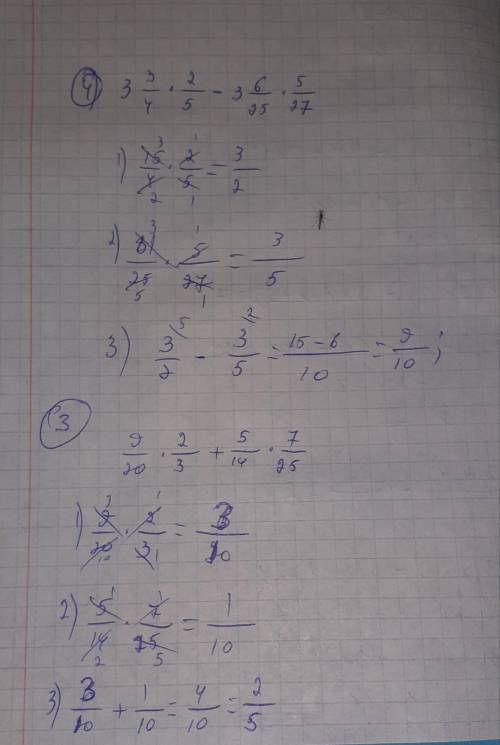 4) 3 3/4 · 2/5 - 3 6/25 · 5/27
1) 15/4 · 2/5 = 3/2
2) 81/25 · 5/27 = 3/5
3) 3/2 - 3/5 = 15-6/10 = 9/10;
3
9/20 · 2/3 + 5/14 · 7/25
1) 9/20 · 2/3 = 3/10
2) 5/14 · 7/25 = 1/10
3) 3/10 + 1/10 = 4/10 = 2/5